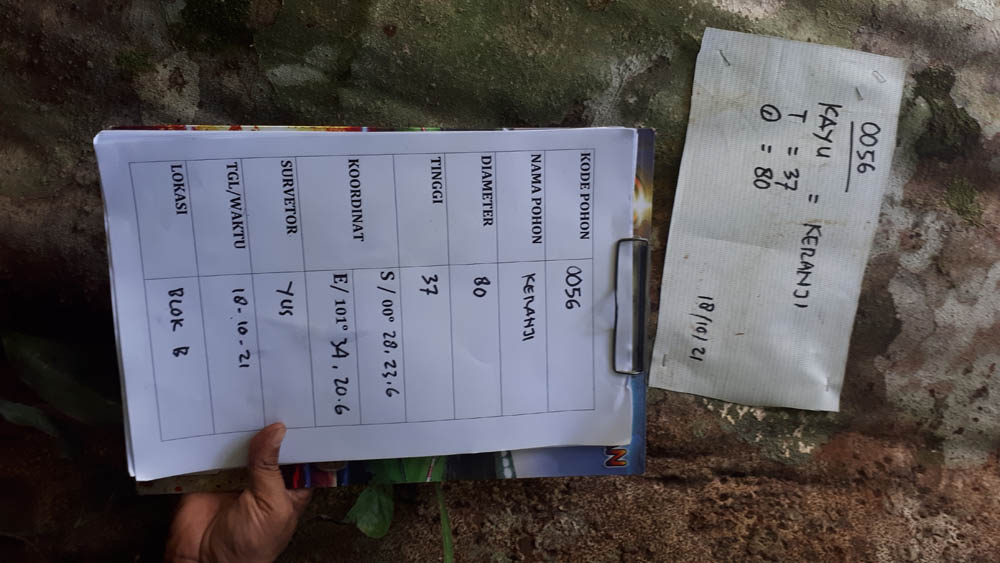 0056
KAYU = KERANJI
T = 37
⌀ = 80
18/10/21
AN
KODE POHON 0056
NAMA POHON KERANJI
DIAMETER 80
TINGGI 37
KOORDINAT
S / 00° 28, 23.6
E/ 101° 34, 20.6
SURVETOR YUS
TGL/WAKTU 18-10-21
LOKASI BLOK B